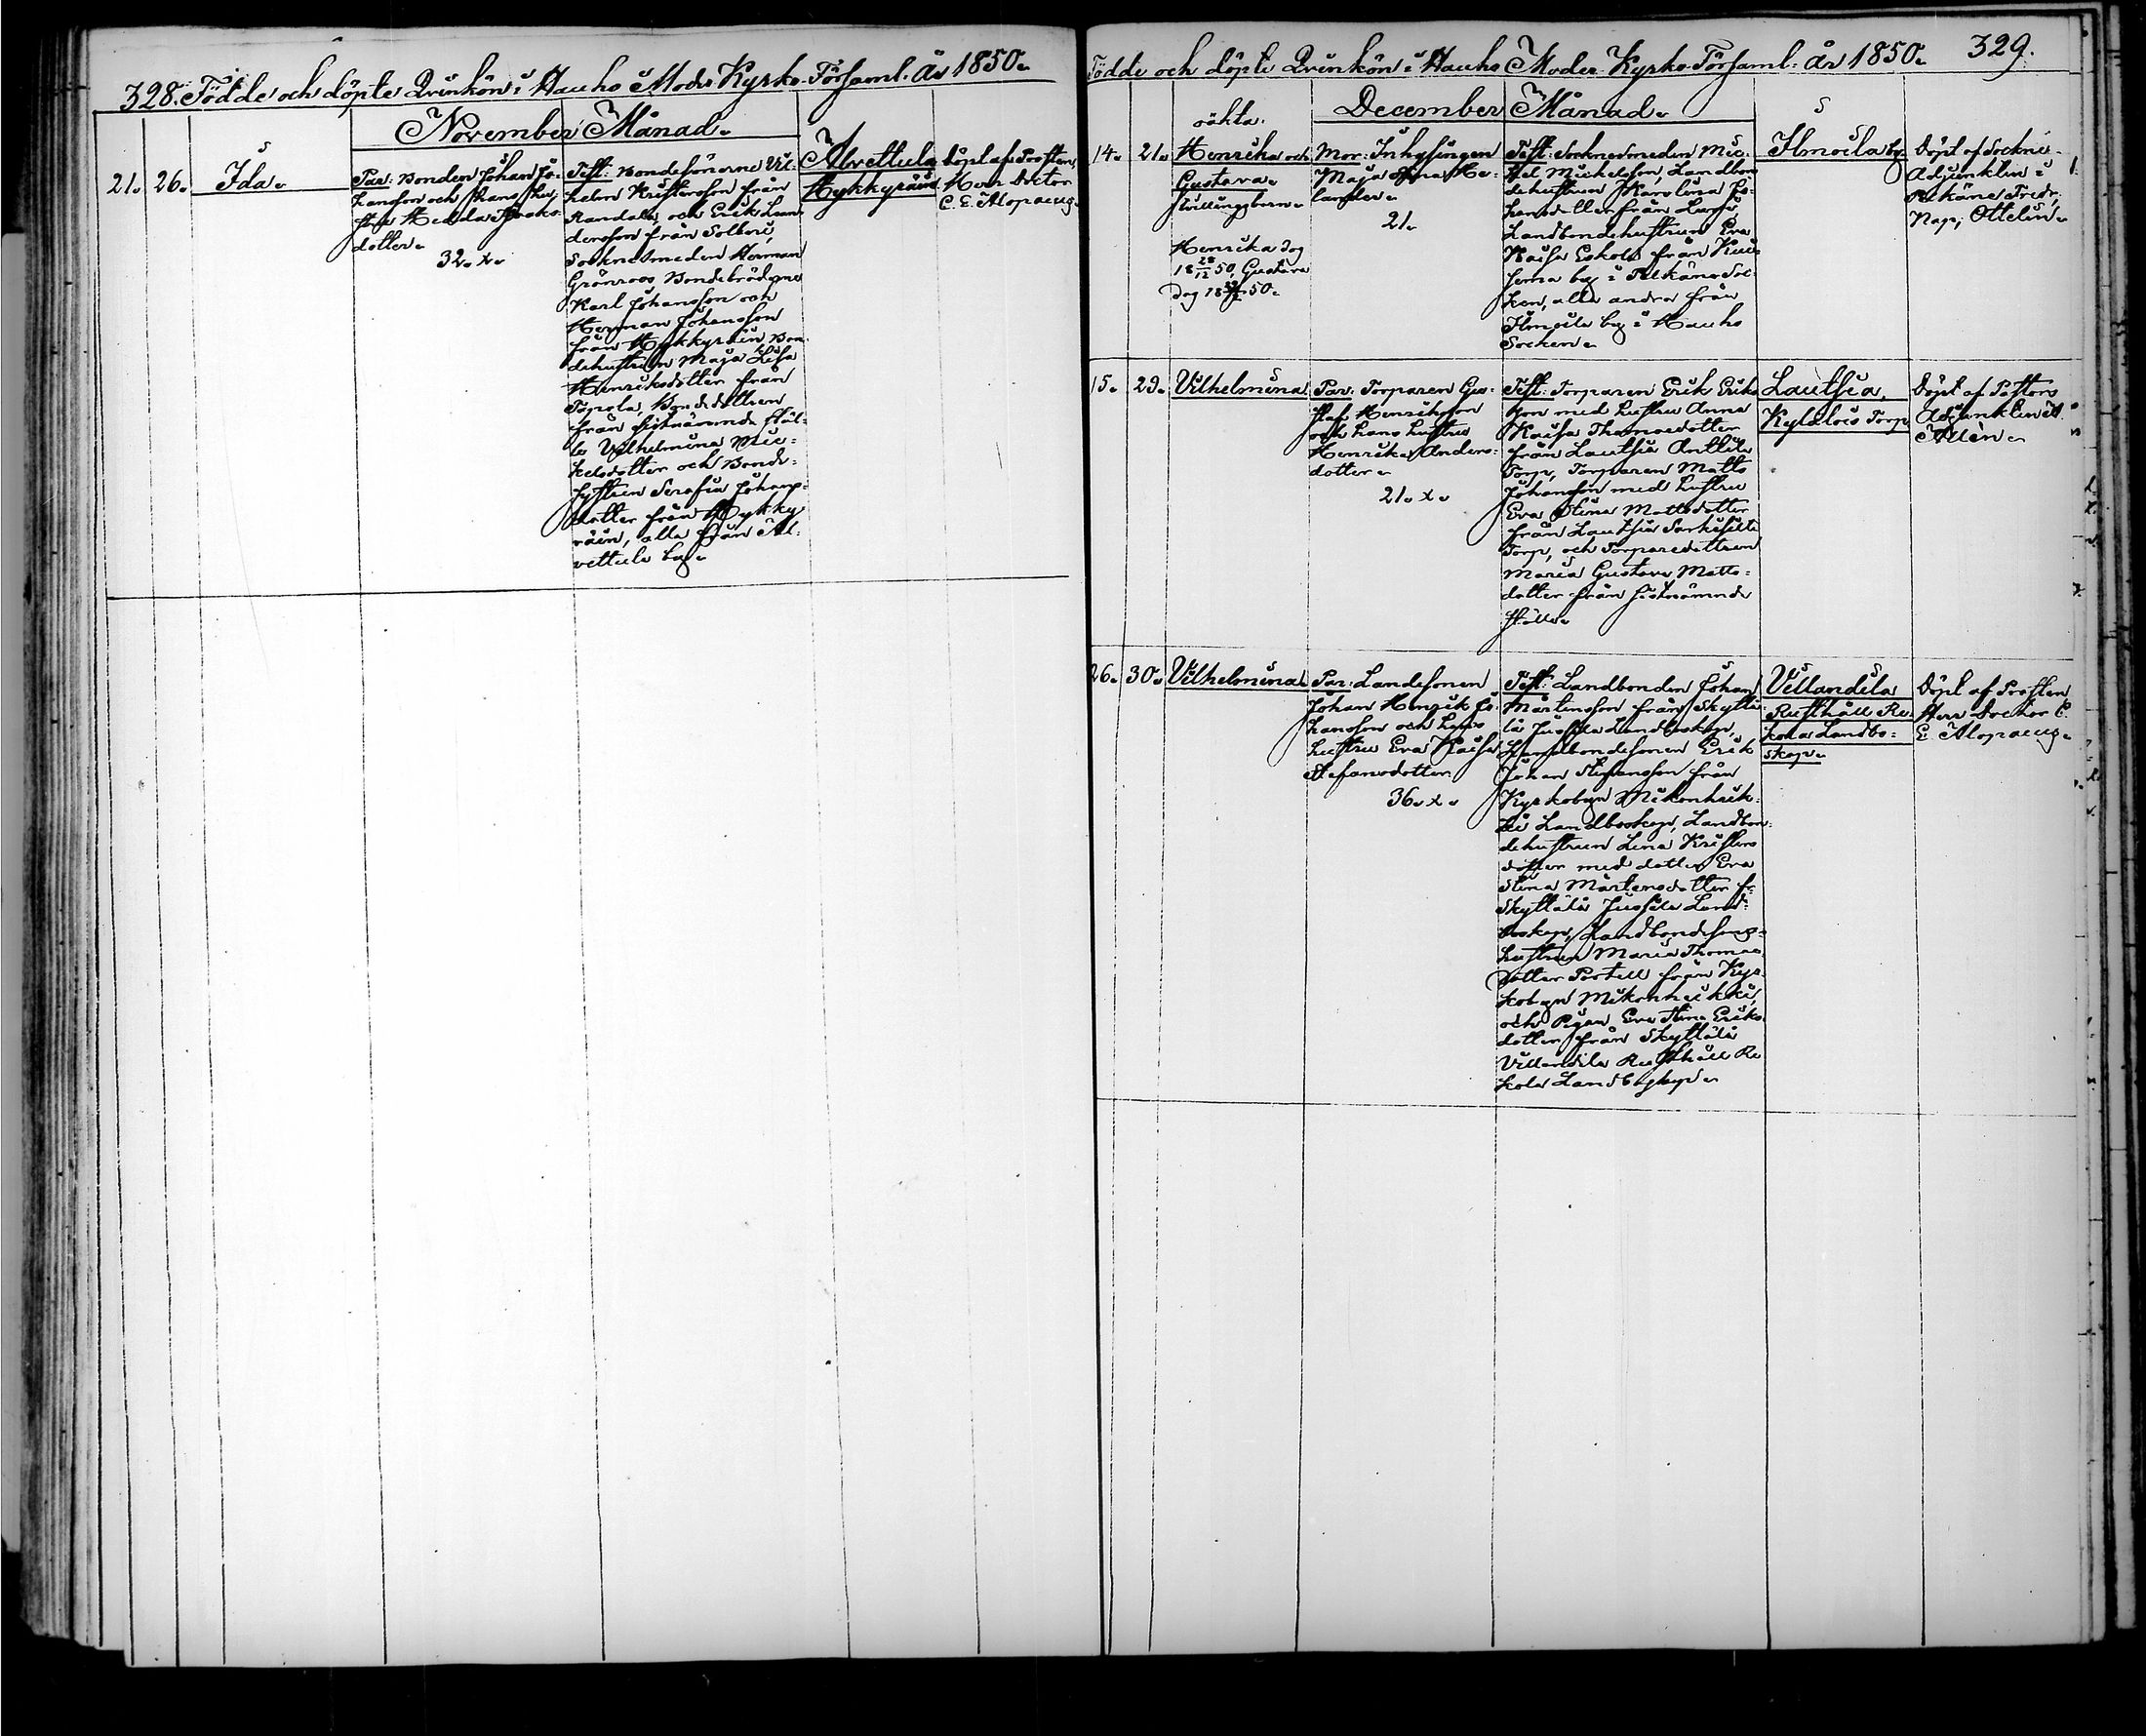 328. Födde och döpte Qvinkön i Hauho Moder Kyrko Församl. År 1850.
November Månad.
21. 26. Ida.
Par: Bonden Johan Jo-
hansson och hans hu-
stru Hedda Isaks-
dotter.
32. x.
Test: Bondesönerne Vil-
helm Kristersson från
Randala och Erik Lun-
dersson från Solberi,
Socknesmeden Herman
Grönroos Bondebröderne
Karl Johansson och
Herman Johansson
från Hykkyräin, Bon-
dehustrun Maja Lisa
Henriksdotter från
Papola, Bondedottren
från sistnämnde stäl-
le Vilhelmina Mic-
kelsdotter och Bonde-
systren Serafia Johans-
dotter från Hykky-
räin, alla från Al-
vettula by.
Alvettula
Hykkyräin
Döpt af Prosten,
Herr Doctor
C. E. Alopaeus.
Födde och döpte Qvinkön i Hauho Moder Kyrko Församl. år 1850. 329.
December Månad.
14. 21.
oäkta.
Henrika och
Gustava.
tvillingsbarn.
Henrika dog
18 28/12 50, Gustava
dog 18 50.
Mor: Inhysingen
Maja Stina He-
lander.
21.
Test: Socknesmeden Mic-
kel Mickelsson, Landbon-
dehustrun Karolina Jo-
hansdotter från
Landbondehustrun Eva
Kaisa Eskola från
by i Pelkäne Soc-
ken, alla andra från
Ilmoila by i Hauho
Socken.
Ilmoila by.
Döpt af Sockne-
Adjunkten i
Pelkäne Fredr.
Nap. Ottelin.
15. 29. Vilhelmina.
Par: Torparen Gus-
taf Henriksson
och hans hustru
Henrika Anders-
dotter.
21. x.
Test: Torparen Erik Eriks-
son med hustru Anna
Kaisa Thomasdotter
från Lautsia Anttila
Torp, Torparen Matts
Johansson med hustru
Eva Stina Mattsdotter
från Lautsia
Torp, och Torparedottren
Maria Gustava Matts-
dotter från sistnämnde
ställe.
Lautsia,
Torp.
Döpt af Pastors
Adjunkten A.
26. 30. Vilhelmina.
Par: Landbsonen
Johan Henrik Jo-
hansson och hans
hustru Eva Kaisa
Stefansdotter.
36. x.
Test: Landbonden Johan
Mårtensson från Skyttä-
lä Jussila Landboskap,
Landbondesonen Erik
Johan Stefansson från
Kyrkobyn Mikonheik-
ki Landboskap, Landbon-
dehustrun Lena Kristers-
dotter med dotter Eva
Stina Mårtensdotter fr.
Skyttälä Jussila Land-
boskap, Landbondesons-
hustrun Maria Thomas-
dotter Portell från Kyr-
kobyn Mikonheikki,
och Pigan Eva Stina Eriks-
dotter från Skyttälä
Villandila Rusthåll Re-
kola Landboskap.
Villandila
Rusthåll Re-
kola Landbo-
skap.
Döpt af Prosten
Herr Doctor C.
E. Alopaeus.